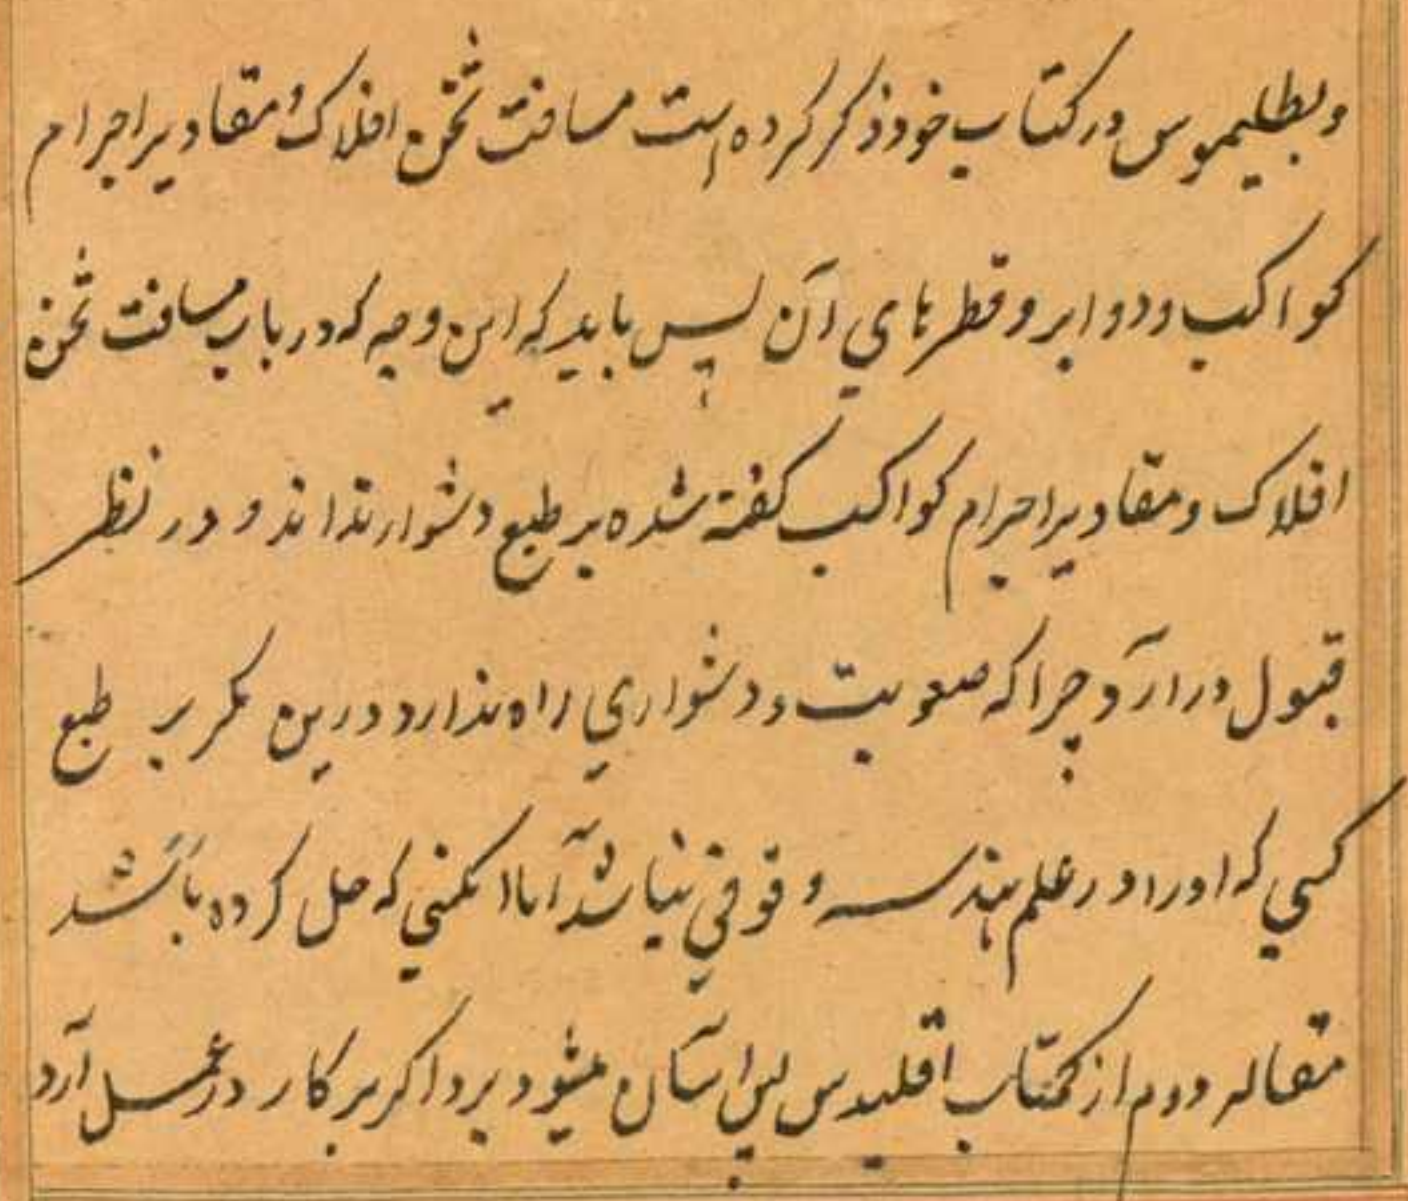 و بطلیموس در کتاب خود ذکر کرده است مسافت ثخن افلاک و مقادیر اجرام
کواکب و دوایر و قطرهای آن پس باید که این وجه که در باب مسافت ثخن
افلاک و مقادیر اجرام کواکب گفته شده بر طبع دشوار نداند و در نظر
قبول در آرد چرا که صعوبت و دشواری راه ندارد درین مگر بر طبع
کسی که او را در علم هندسه وقوفی نباشد اما انکسی که حل کرده باشد
مقاله دوم از کتاب اقلیدس پس آسان میشود برو اگر بر کار در عمل آرد